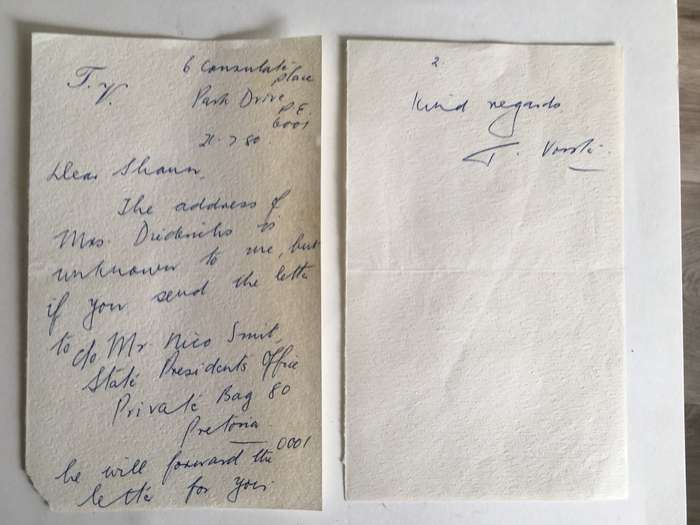 T.V.
6 Consulate
place
Park Drive
P.E.
6001
21-7 80.
Dear Shaun,
The address of
Mrs. Diederichs is
unknown to me, but
if you send the letter
to c/o Mr. Nico Smit,
State Presidents Office
Private Bag 80
Pretoria
0001
he will forward the
letter for you.
2
Kind regards
T. Vorster.